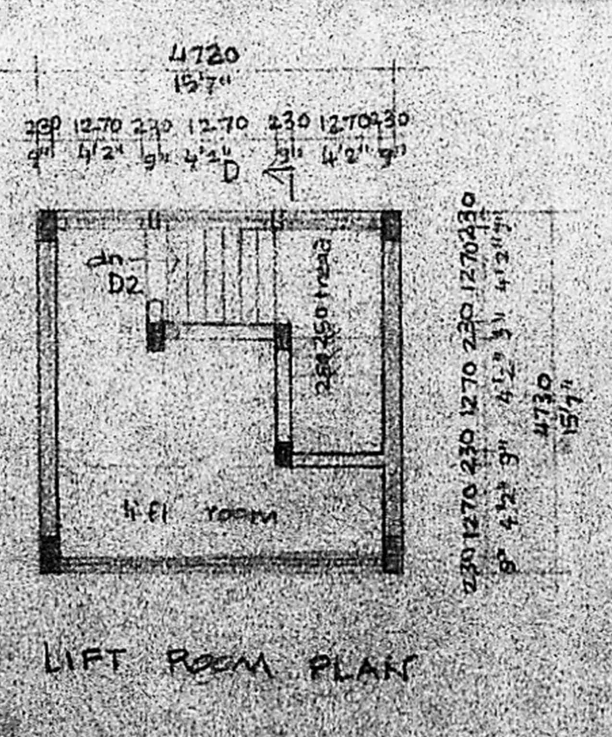 4730
15'7"
230 1270 230 1270 230 1270 230
9" 4'2" 9" 4'2" 9" 4'2" 9"
D
dn
D2
250 tread
lift room
230 1270 230 1270 230 1270 230
9" 4'2" 9" 4'2" 9" 4'2" 9"
4730
15'7"
LIFT ROOM PLAN